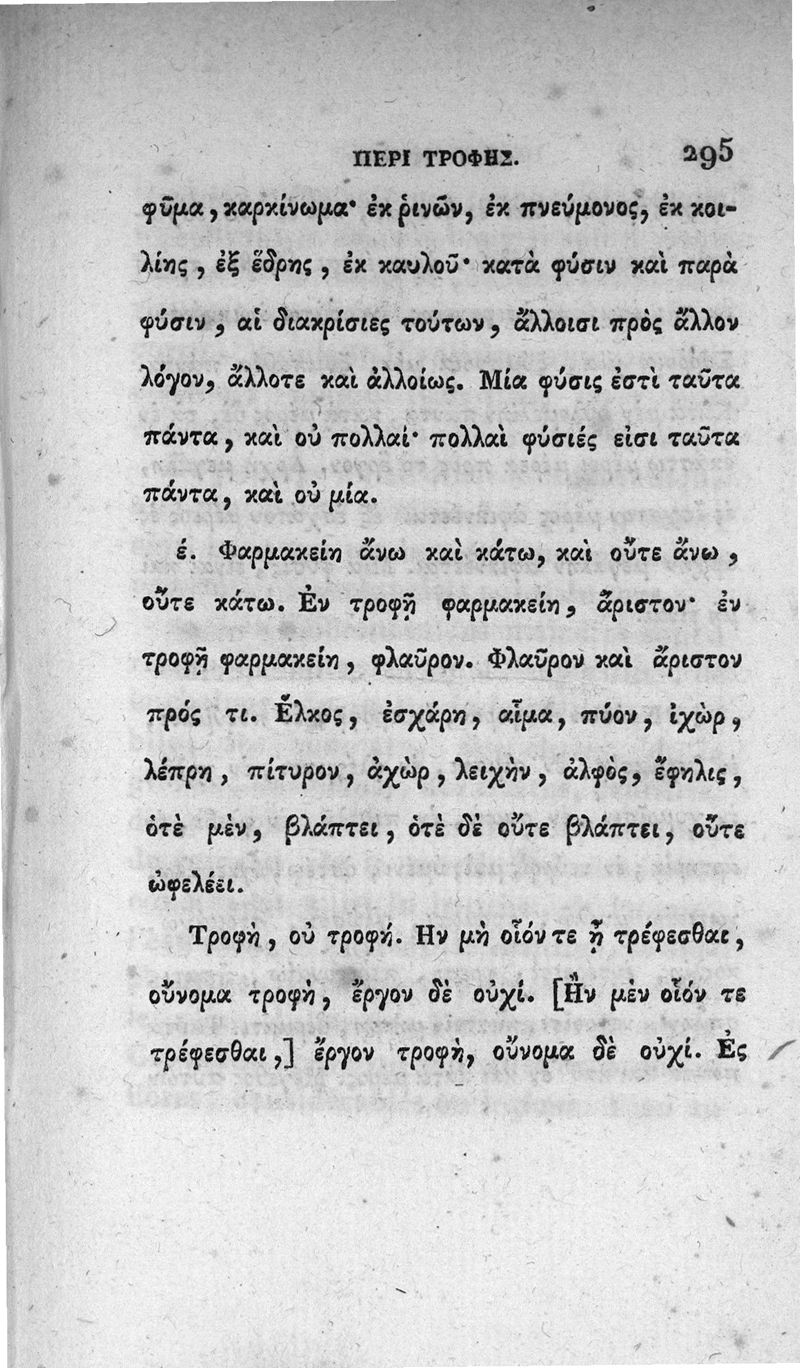 ΠΕΡΙ ΤΡΟΦΗΣ. 295
φῦμα, καρκίνωμα· ἐκ ῥινῶν, ἐκ πνεύμονος, ἐκ κοι-
λίης, ἐξ ἕδρης, ἐκ καυλοῦ· κατὰ φύσιν καὶ παρὰ
φύσιν, αἱ διακρίσιες τούτων, ἄλλοισι πρὸς ἄλλον
λόγον, ἄλλοτε καὶ ἀλλοίως. Μία φύσις ἐστὶ ταῦτα
πάντα, καὶ οὐ πολλαί· πολλαὶ φύσιές εἰσι ταῦτα
πάντα, καὶ οὐ μία.
έ. Φαρμακείη ἄνω καὶ κάτω, καὶ οὔτε ἄνω,
οὔτε κάτω. Ἐν τροφῇ φαρμακείη, ἄριστον· ἐν
τροφῇ φαρμακείη, φλαῦρον. Φλαῦρον καὶ ἄριστον
πρός τι. Ἕλκος, ἐσχάρη, αἷμα, πύον, ἰχὼρ,
λέπρη, πίτυρον, ἀχὼρ, λειχὴν, ἀλφὸς, ἔφηλις,
ὁτὲ μὲν, βλάπτει, ὁτὲ δὲ οὔτε βλάπτει, οὔτε
ὠφελέει.
Τροφὴ, οὐ τροφή. Ην μὴ οἷόν τε ᾖ τρέφεσθαι,
οὔνομα τροφὴ, ἔργον δὲ οὐχί. [Ἢν μὲν οἷόν τε
τρέφεσθαι,] ἔργον τροφὴ, οὔνομα δὲ οὐχί. Ἐς